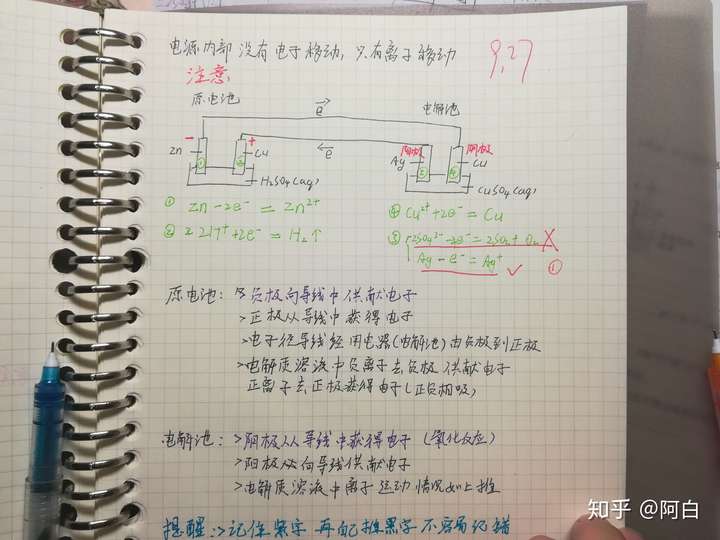 电源内部没有电子移动，只有离子移动
9.27
注意
原电池
电解池
e
e
- + 阳极 阴极
Zn Cu Ag Cu
① ② ③ ④
H₂SO₄(aq)
CuSO₄(aq)
① Zn-2e⁻=Zn²⁺
④ Cu²⁺+2e⁻=Cu
② 2H⁺+2e⁻=H₂↑
③
Ag-e⁻=Ag⁺ ✓ ①
原电池：>负极向导线中供献电子
>正极从导线中获得电子
>电子径导线经用电器(电解池)由负极到正极
>电解质溶液中负离子去负极供献电子
正离子去正极获得电子(正负相吸)
电解池：>阴极从导线中获得电子(氧化反应)
>阳极向导线供献电子
>电解质溶液中离子运动情况如上推
提醒：>记住紫字 再自己推黑字 不容易记错
知乎 @阿白